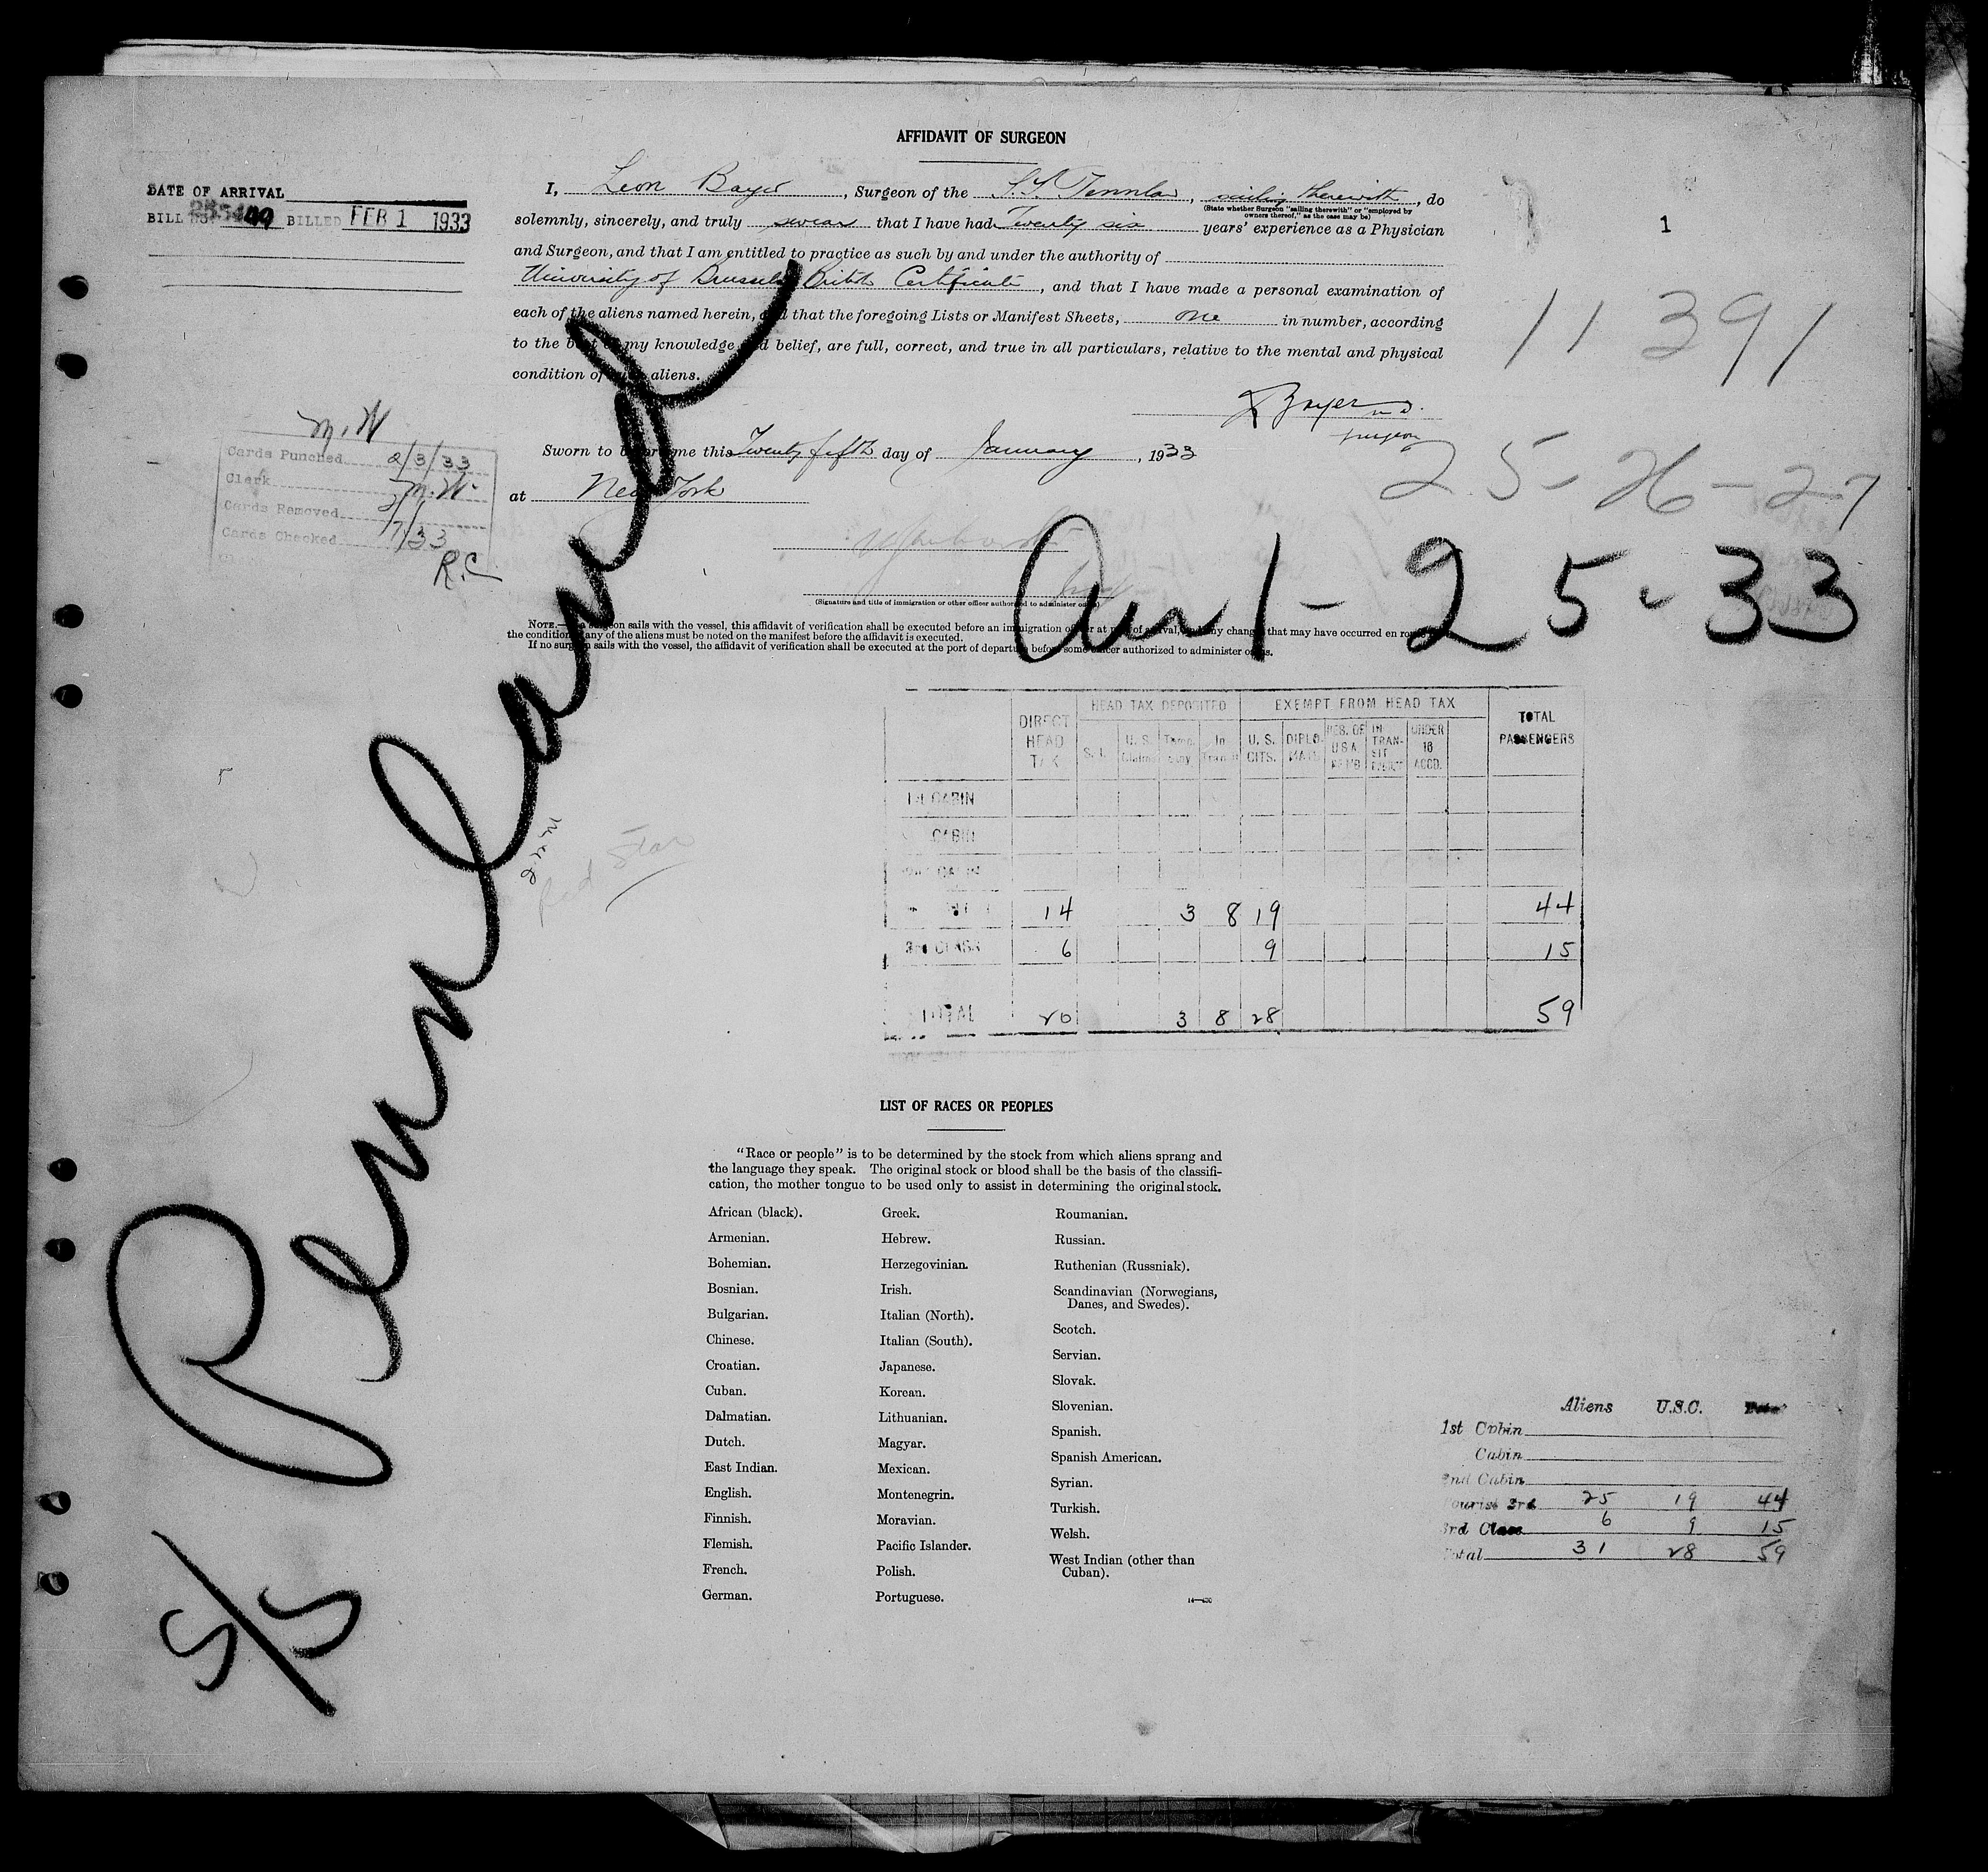 AFFIDAVIT OF SURGEON
DATE OF ARRIVAL
BILL NO. BILLED FEB 1 1933
I, Leon Bayer, Surgeon of the S.S. Pennland, sailing therewith, do
(State whether Surgeon "sailing therewith" or "employed by
owners thereof," as the case may be)
solemnly, sincerely, and truly swear that I have had Twenty six years' experience as a Physician
and Surgeon, and that I am entitled to practice as such by and under the authority of
University of Brussels British Certificate, and that I have made a personal examination of
each of the aliens named herein, and that the foregoing Lists or Manifest Sheets, one in number, according
to the best of my knowledge and belief, are full, correct, and true in all particulars, relative to the mental and physical
condition of aliens.
1
11391
L Bayer M.D.
Surgeon
Sworn to before me this Twenty fifth day of January, 1933
at New York
25-26-27
M.W
Cards Punched 2/3/33
Clerk M.W.
Cards Removed
Cards Checked
R.C
Arr 1-25-33
(Signature and title of immigration or other officer authorized to administer oaths)
NOTE.—If a surgeon sails with the vessel, this affidavit of verification shall be executed before an immigration officer at port of arrival, any changes that may have occurred en route
the condition of any of the aliens must be noted on the manifest before the affidavit is executed.
If no surgeon sails with the vessel, the affidavit of verification shall be executed at the port of departure before some officer authorized to administer oaths.
S/S Pennland
Red Star
DIRECT HEAD TAX
HEAD TAX DEPOSITED
EXEMPT FROM HEAD TAX
TOTAL PASSENGERS
S. I. U. S. Claims Temp. In Transit U. S. CITS. DIPLO- MATS RES. OF U S A IN TRAN- SIT UNDER 16 ACCD.
1st CABIN
CABIN
2nd CABIN
14 3 8 19 44
3rd CLASS 6 9 15
TOTAL 20 3 8 28 59
LIST OF RACES OR PEOPLES
"Race or people" is to be determined by the stock from which aliens sprang and
the language they speak. The original stock or blood shall be the basis of the classifi-
cation, the mother tongue to be used only to assist in determining the original stock.
African (black).
Armenian.
Bohemian.
Bosnian.
Bulgarian.
Chinese.
Croatian.
Cuban.
Dalmatian.
Dutch.
East Indian.
English.
Finnish.
Flemish.
French.
German.
Greek.
Hebrew.
Herzegovinian.
Irish.
Italian (North).
Italian (South).
Japanese.
Korean.
Lithuanian.
Magyar.
Mexican.
Montenegrin.
Moravian.
Pacific Islander.
Polish.
Portuguese.
Roumanian.
Russian.
Ruthenian (Russniak).
Scandinavian (Norwegians,
Danes, and Swedes).
Scotch.
Servian.
Slovak.
Slovenian.
Spanish.
Spanish American.
Syrian.
Turkish.
Welsh.
West Indian (other than
Cuban).
Aliens U.S.C. Total
1st Cabin
Cabin
2nd Cabin
Tourist 3rd 25 19 44
3rd Class 6 9 15
Total 31 28 59